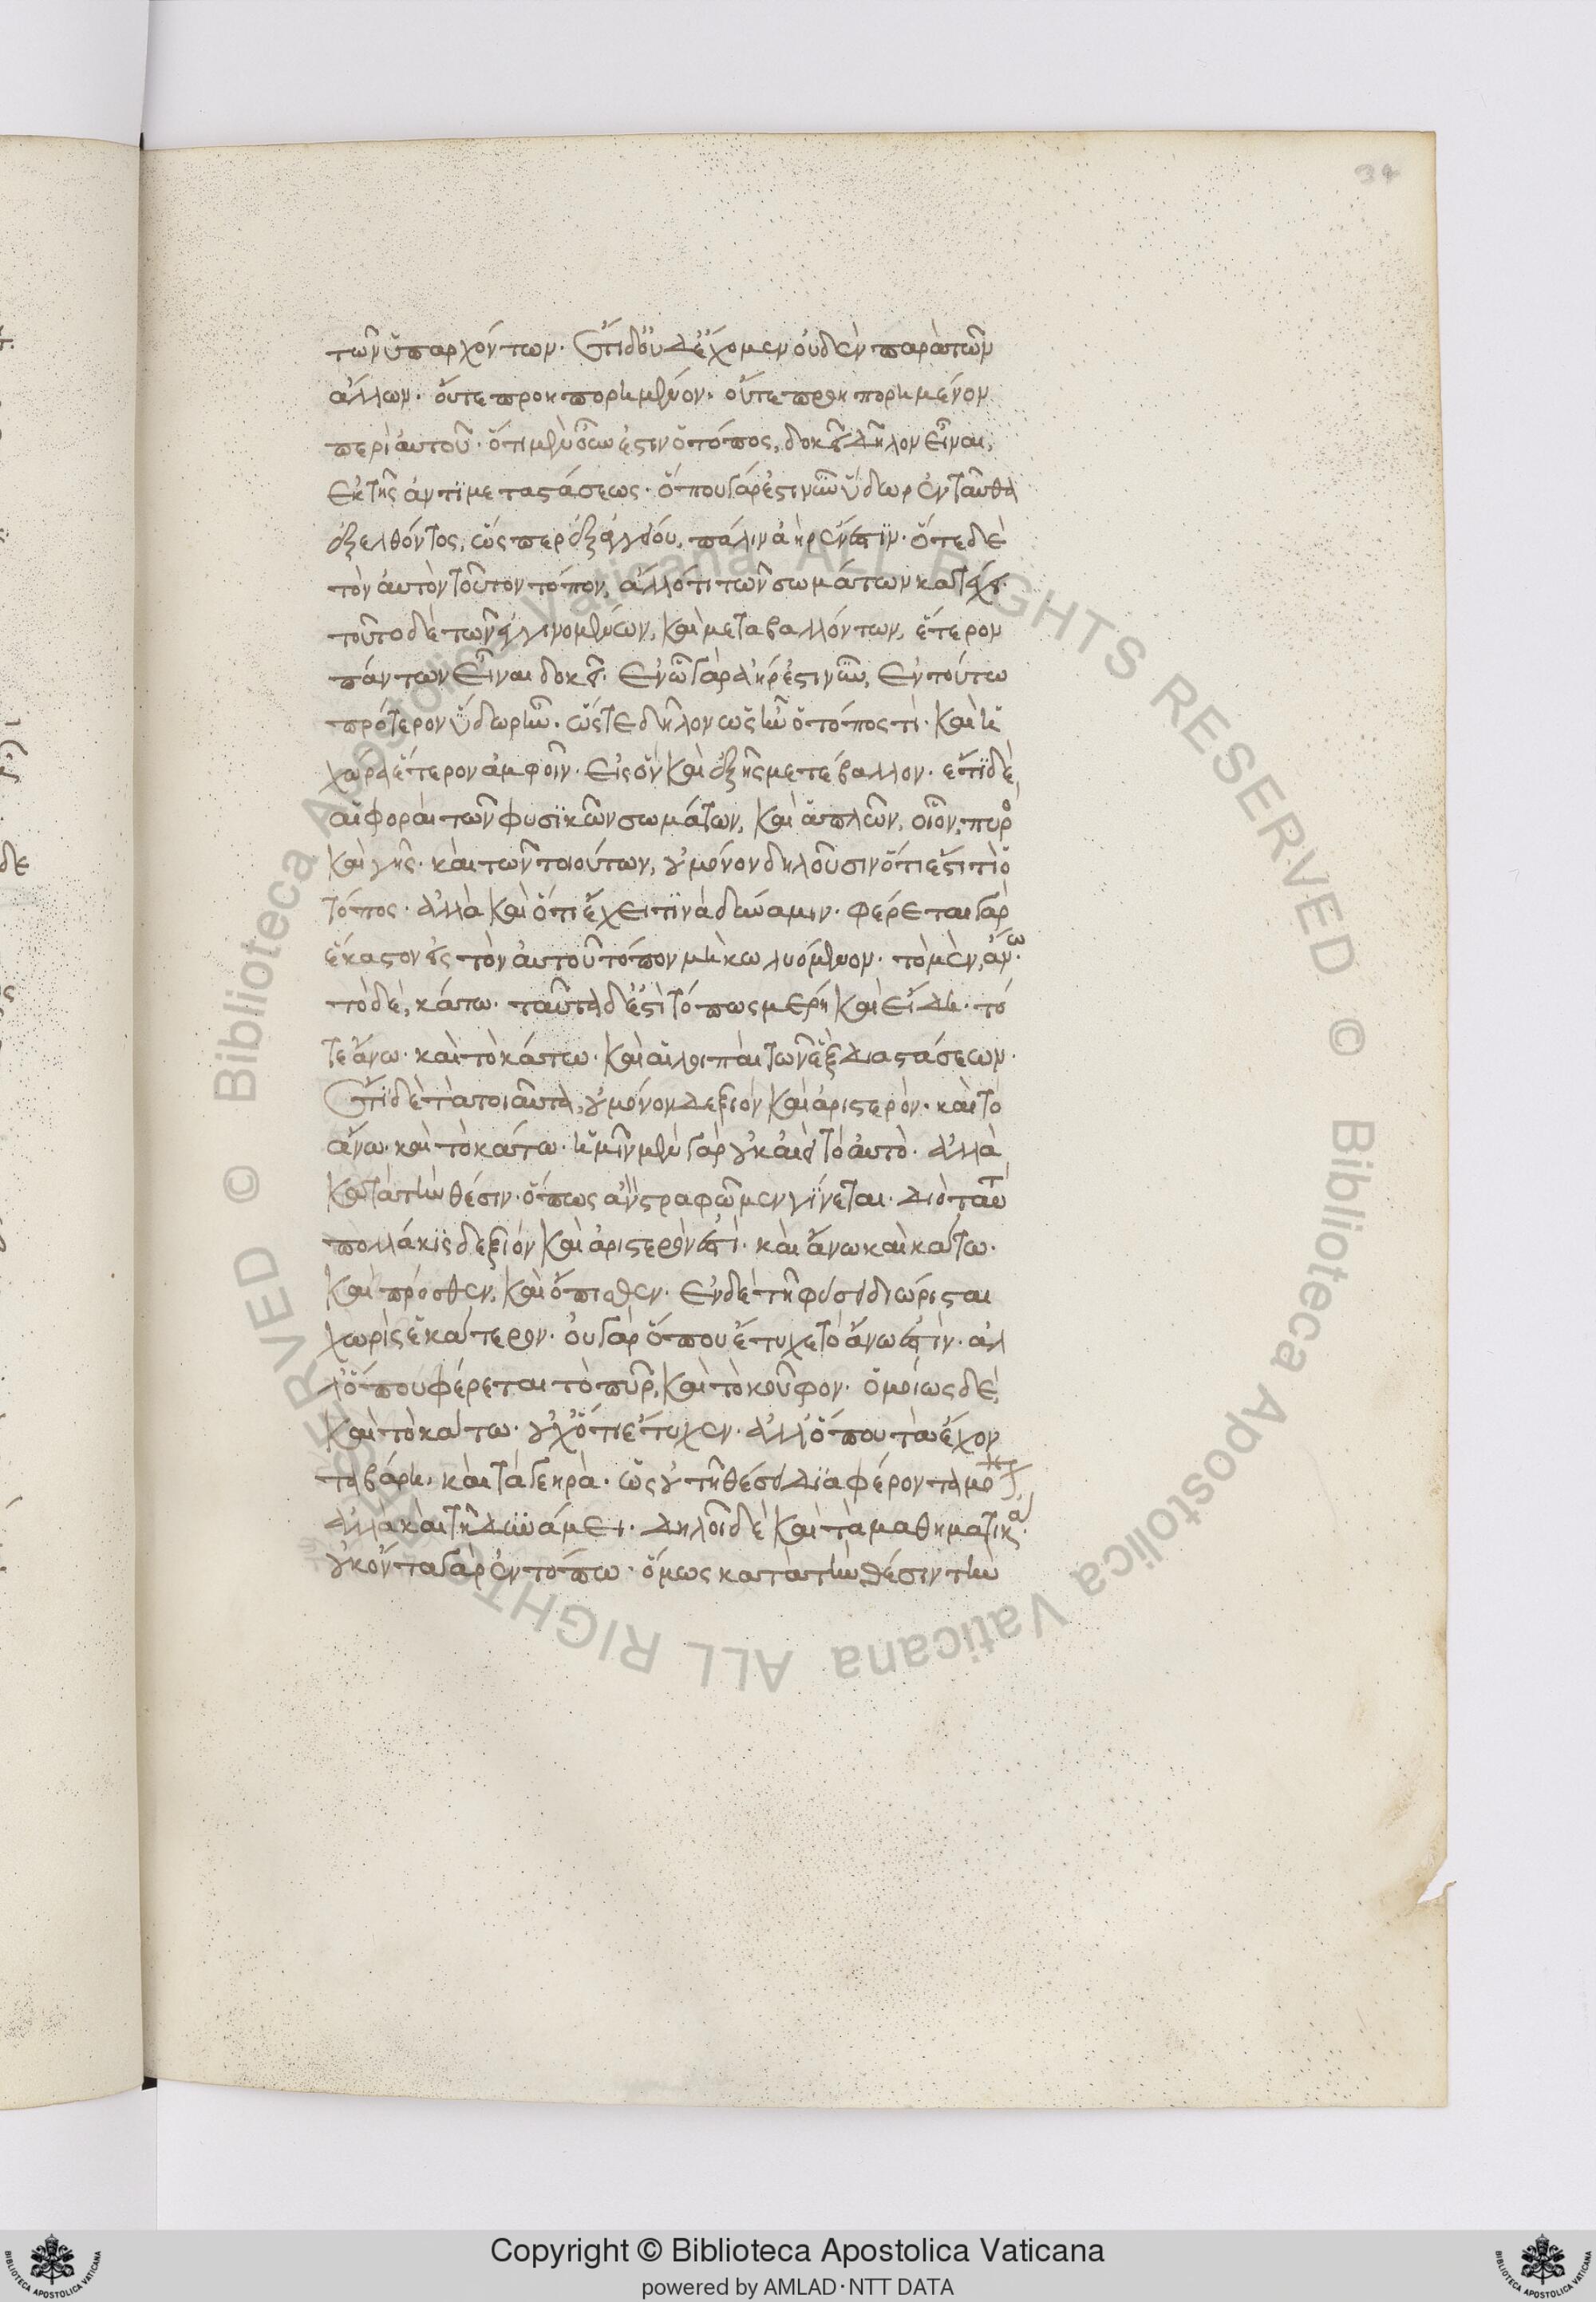 34
τῶν ὑπαρχόντων. ἔτι δ' οὐδ' ἔχομεν οὐδὲν παρὰ τῶν
ἄλλων. οὔτε προηπορημένον. οὔτε προηυπορημένον
περὶ αὐτοῦ. ὅτι μὲν οὖν ἐστιν ὁ τόπος, δοκεῖ δῆλον εἶναι,
ἐκ τῆς ἀντιμεταστάσεως. ὅπου γάρ ἐστι νῦν ὕδωρ ἐνταῦθα
ἐξελθόντος, ὥσπερ ἐξ ἀγγείου, πάλιν ἀὴρ ἔνεστιν. ὅτε δὲ
τὸν αὐτὸν τοῦτον τόπον, ἄλλό τι τῶν σωμάτων κατέχει.
τοῦτο δὲ τῶν ἐγγινομένων, καὶ μεταβαλλόντων, ἕτερον
πάντων εἶναι δοκεῖ. ἐν ᾧ γὰρ ἀήρ ἐστι νῦν, ἐν τούτω
πρότερον ὕδωρ ἦν. ὥστε δῆλον ὡς ἦν ὁ τόπος τὶ. καὶ ἡ
χώρα ἕτερον ἀμφοῖν. εἰς ὃν καὶ ἐξ ἧς μετέβαλλον. ἔτι δὲ,
αἱ φοραὶ τῶν φυσικῶν σωμάτων, καὶ ἁπλῶν, οἷον, πυρὸς
καὶ γῆς. καὶ τῶν τοιούτων, οὐ μόνον δηλοῦσιν ὅτι ἐστί τι ὁ
τόπος. ἀλλὰ καὶ ὅτι ἔχει τινὰ δύναμιν. φέρεται γὰρ
ἕκαστον εἰς τὸν αὐτοῦ τόπον μὴ κωλυόμενον. τὸ μὲν, ἄνω.
τὸ δὲ, κάτω. ταῦτα δ' ἐστὶ τόπως μέρη καὶ εἴδη. τό
τε ἄνω. καὶ τὸ κάτω. καὶ αἱ λοιπαὶ τῶν ἓξ διαστάσεων.
ἔτι δὲ τὰ τοιαῦτα, οὐ μόνον δεξιὸν καὶ ἀριστερὸν. καὶ τὸ
ἄνω. καὶ τὸ κάτω. ἡμῖν μὲν γὰρ οὐκ ἀεὶ τὸ αὐτὸ. ἀλλὰ
κατὰ τὴν θέσιν. ὅπως ἂν στραφῶμεν γίνεται. διὸ ταυτ
πολλάκις δεξιὸν καὶ ἀριστερὸν ἐστὶ. καὶ ἄνω καὶ κάτω.
καὶ πρόσθεν, καὶ ὄπισθεν. ἐν δὲ τῆ φύσει διώρισται
χωρὶς ἑκάτερον. οὐ γὰρ ὅπου ἔτυχε τὸ ἄνω ἐστὶν. ἀλ
λ' ὅπου φέρεται τὸ πῦρ, καὶ τὸ κοῦφον. ὁμοίως δὲ,
καὶ τὸ κάτω. οὐχ ὅτι ἔτυχεν. ἀλλ' ὅπου τὰ ἔχον
τα βάρη. καὶ τὰ γεηρὰ. ὡς οὐ τῆ θέσει διαφέροντα μον
ἀλλὰ καὶ τῆ δυνάμει. δηλοῖ δὲ καὶ τὰ μαθηματικὰ.
οὐκ ὄντα γὰρ ἐν τόπω. ὅμως κατὰ τὴν θέσιν τὴν
Copyright © Biblioteca Apostolica Vaticana
powered by AMLAD·NTT DATA